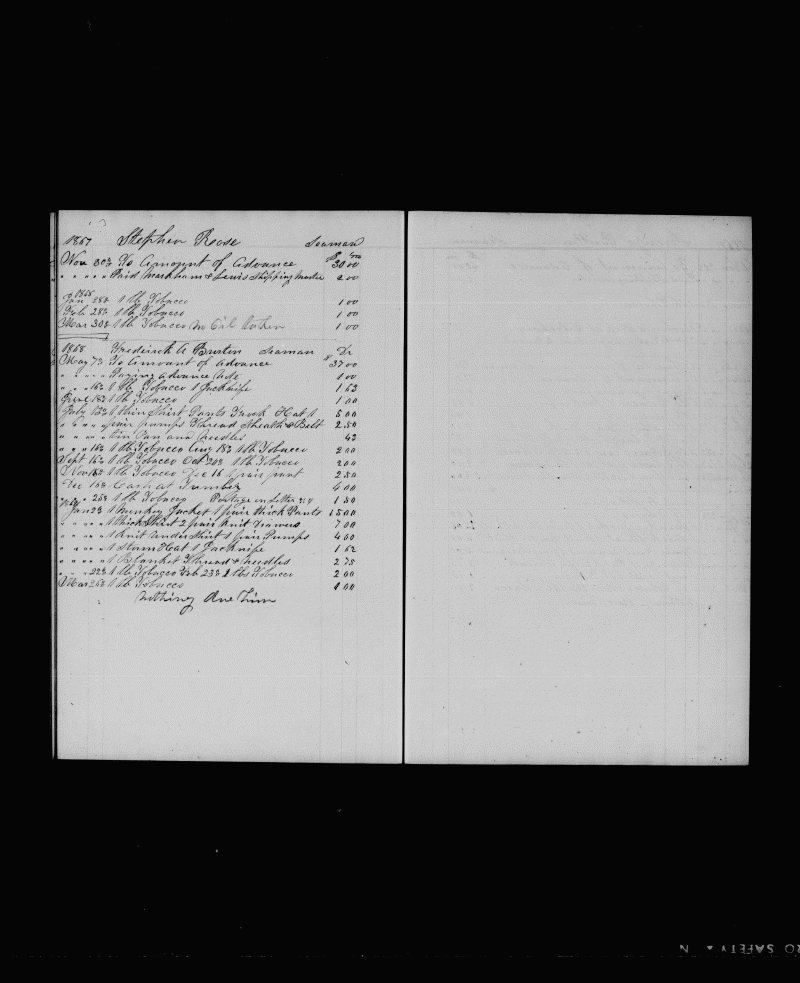 1867 Stephen Roose Seaman
Nov 30th To Amount of Advance $30 00
" " " " Paid Markham & Lewis Shipping Master 2 00
1868
Jan 28th 1 lb Tobacco 1 00
Feb 28th 1 lb Tobacco 1 00
Mar 30th 1 lb Tobacco No Oil taken 1 00
1868 Frederick A Burton Seaman Dr
May 7th To Amount of Advance $37 00
" " " " Paying Advance Note 1 00
" " 16th 1 lb Tobacco 1 Jacknife 1 63
June 18th 1 lb Tobacco 1 00
July 13th 1 thin Shirt Pants Frock Hat 1 5 00
" " " pair pumps Thread Sheath & Belt 2 50
" " " " tin Pan and Needles 43
" " " 18th 1 lb Tobacco Aug 18th 1 lb Tobacco 2 00
Sept 16th 1 lb Tobacco Oct 20th 1 lb Tobacco 2 00
Nov 18th 1 lb Tobacco Dec 16 1 pair pant 2 50
Dec 18th Cash at Tumbez 4 00
" " 25th 1 lb Tobacco Postage on Letter 1 50
1869
Jan 2d 1 Munkey Jacket 1 pair thick Pants 15 00
" " " " 1 thick Shirt 2 pair Knit Drawers 7 00
" " " " 1 Knit under Shirt 1 pair Pumps 4 00
" " " " 1 Hat 1 Jacknife 1 62
" " " " 1 Blanket Thread & Needles 2 75
" " 22d 1 lb Tobacco Feb 23d 1 lbs Tobacco 2 00
Mar 25th 1 lb Tobacco 1 00
Nothing Due him
SAFETY ▲ N